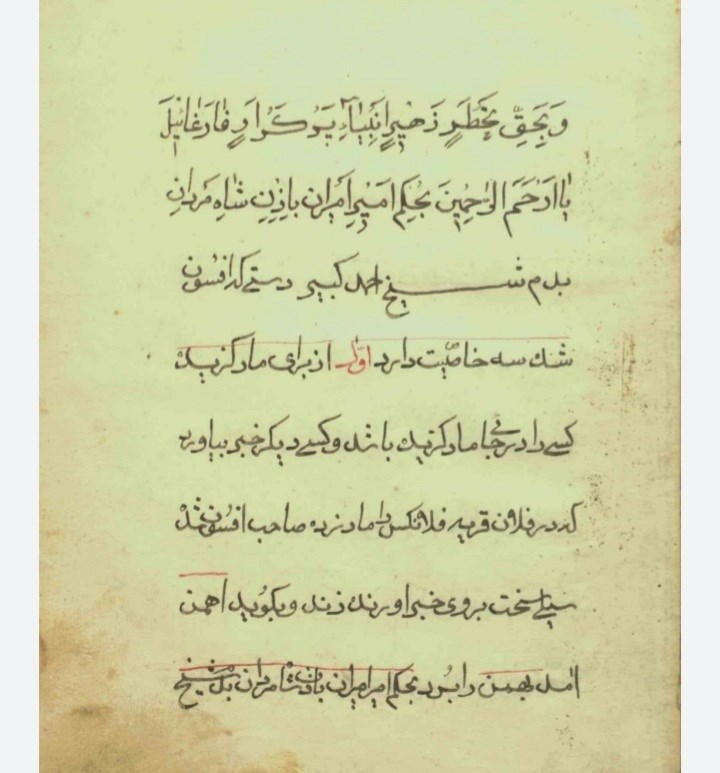 وَبِحَقِّ بَخَطَرٍ زَهِیرِ اَنْبِیٰآءِ پَوُکَرْاوَرٍ فٰارَغٰائیٖلَ
یٰااَرْحَمَ الرّٰحِمِینَ بُحکِمِ اَمٖیرِ اَمیٖرٰان بِاذِنِ شٰاهِ مَردٰانِ
بدم شیخ احمد کبیر دستے که افسون
شد سه خاصّیت دارد اوّل از برای مار گزیده
کسے را در جا مار گزیده باشد و کسے دیگر خبر بیاورد
که در فلان قریه فلانکس را مار زده صاحب افسون شده
سیلے سخت بروی خبر اورنده زند و بگوید اهمن
امد بهمن را بُرد بحکم امیر امیران باذن شاه مردان بدم شیخ